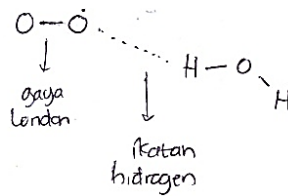 O — O
H — O
H
gaya
London
ikatan
hidrogen